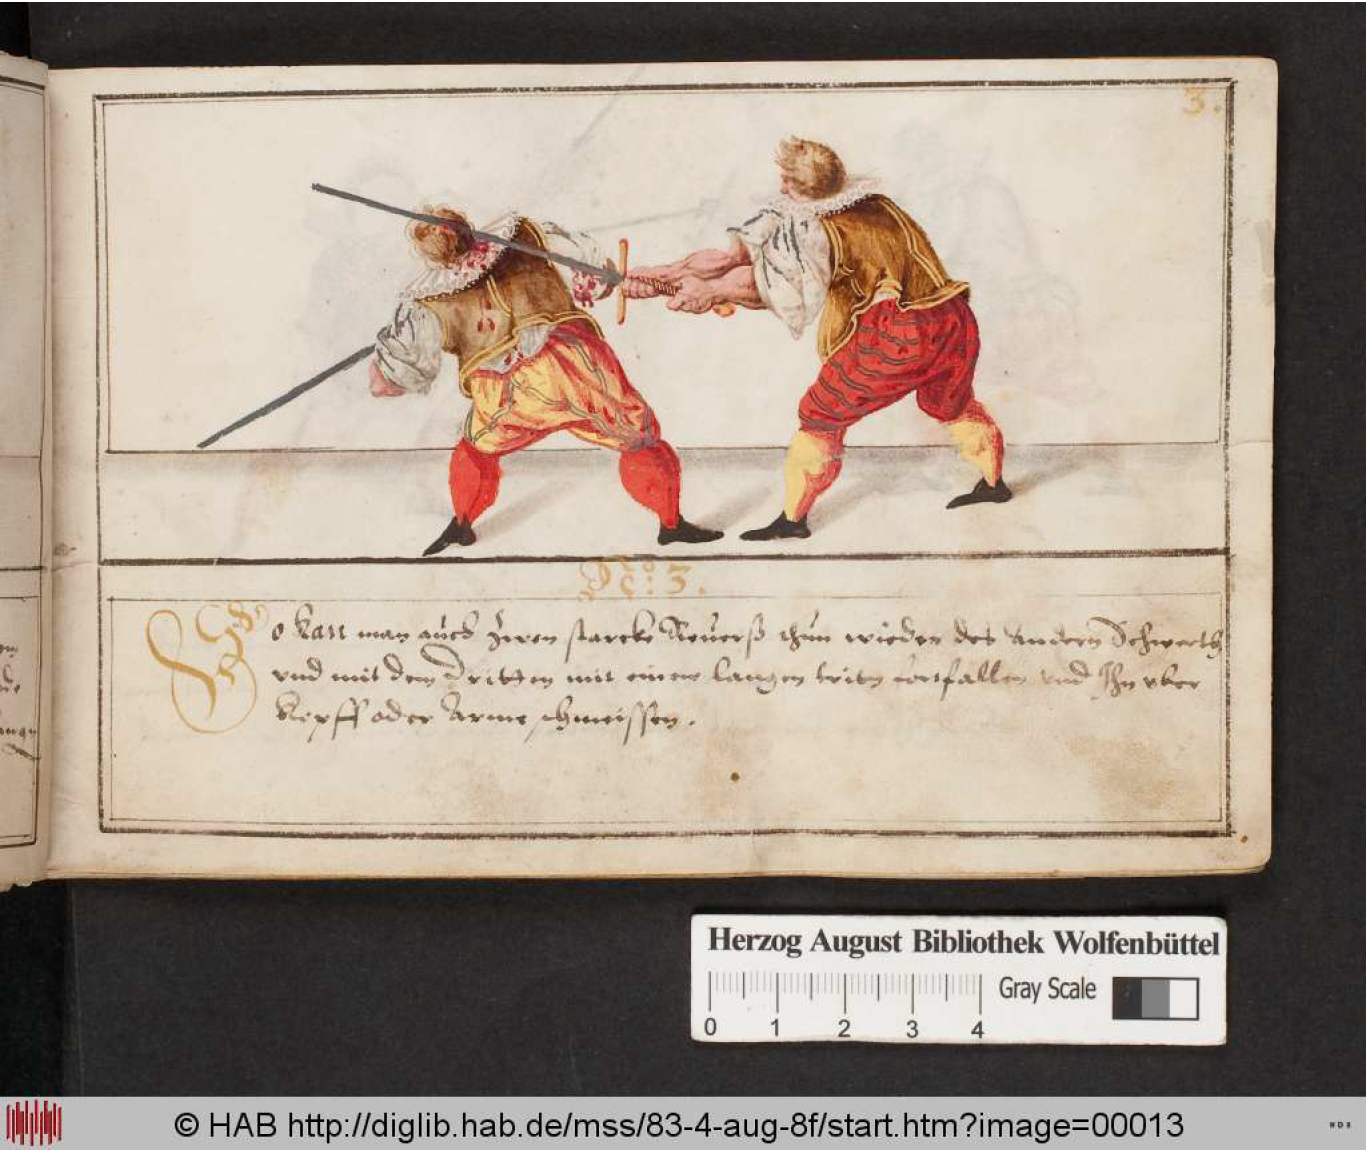 3.
No: 3.
So kan man auch zwen starcke Reverß thun wieder des andern Schwerth
und mit dem Dritten mit einem langen tritt fortfallen und Ihn uber
Kopff oder Arme schmeissen.
Herzog August Bibliothek Wolfenbüttel
0 1 2 3 4 Gray Scale
© HAB http://diglib.hab.de/mss/83-4-aug-8f/start.htm?image=00013